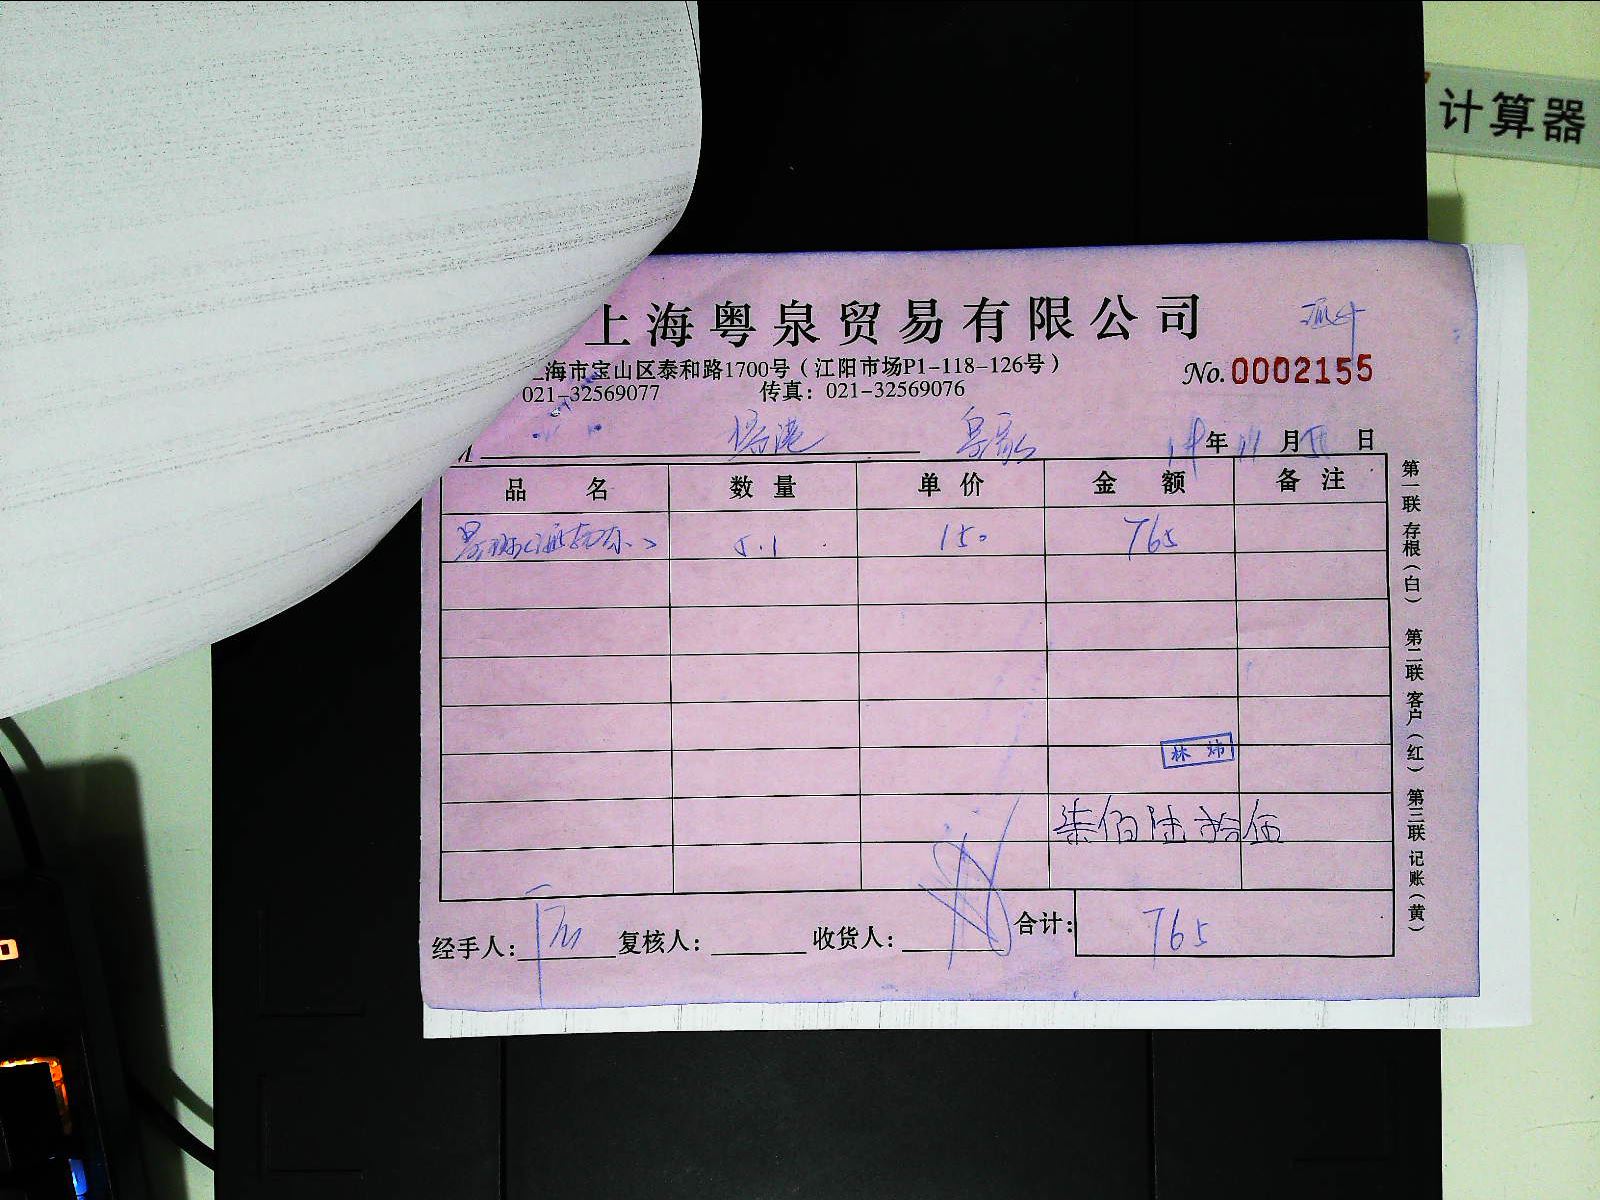 计算器
上海粤泉贸易有限公司
海市宝山区泰和路1700号（江阳市场P1-118-126号）
No.0002155
021-32569077 传真：021-32569076
年 11 月 日
品名 数量 单价 金额 备注
5.1 150 765
林炜
柒佰陆拾伍
经手人： 复核人： 收货人： 合计： 765
第一联 存根（白） 第二联 客户（红） 第三联 记账（黄）